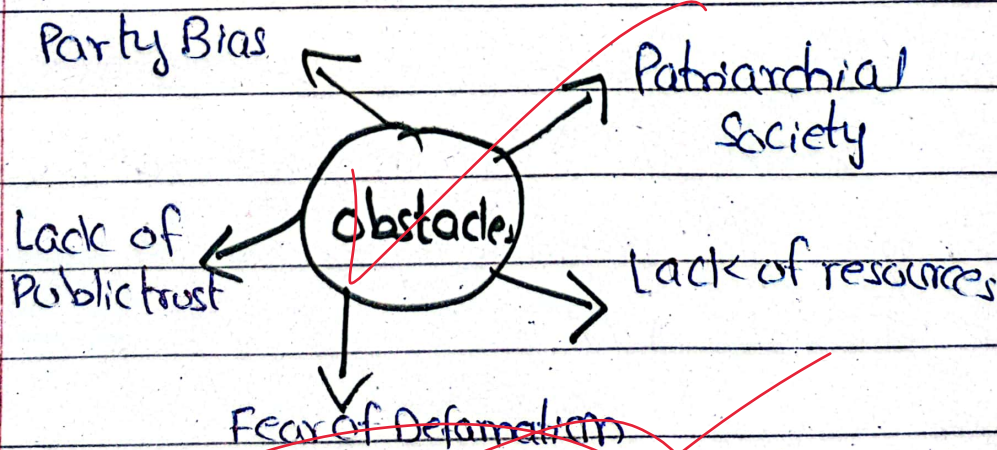 Party Bias
Patriarchial
Society
obstacles
Lack of
Public trust
Lack of resources
Fear of Defamation